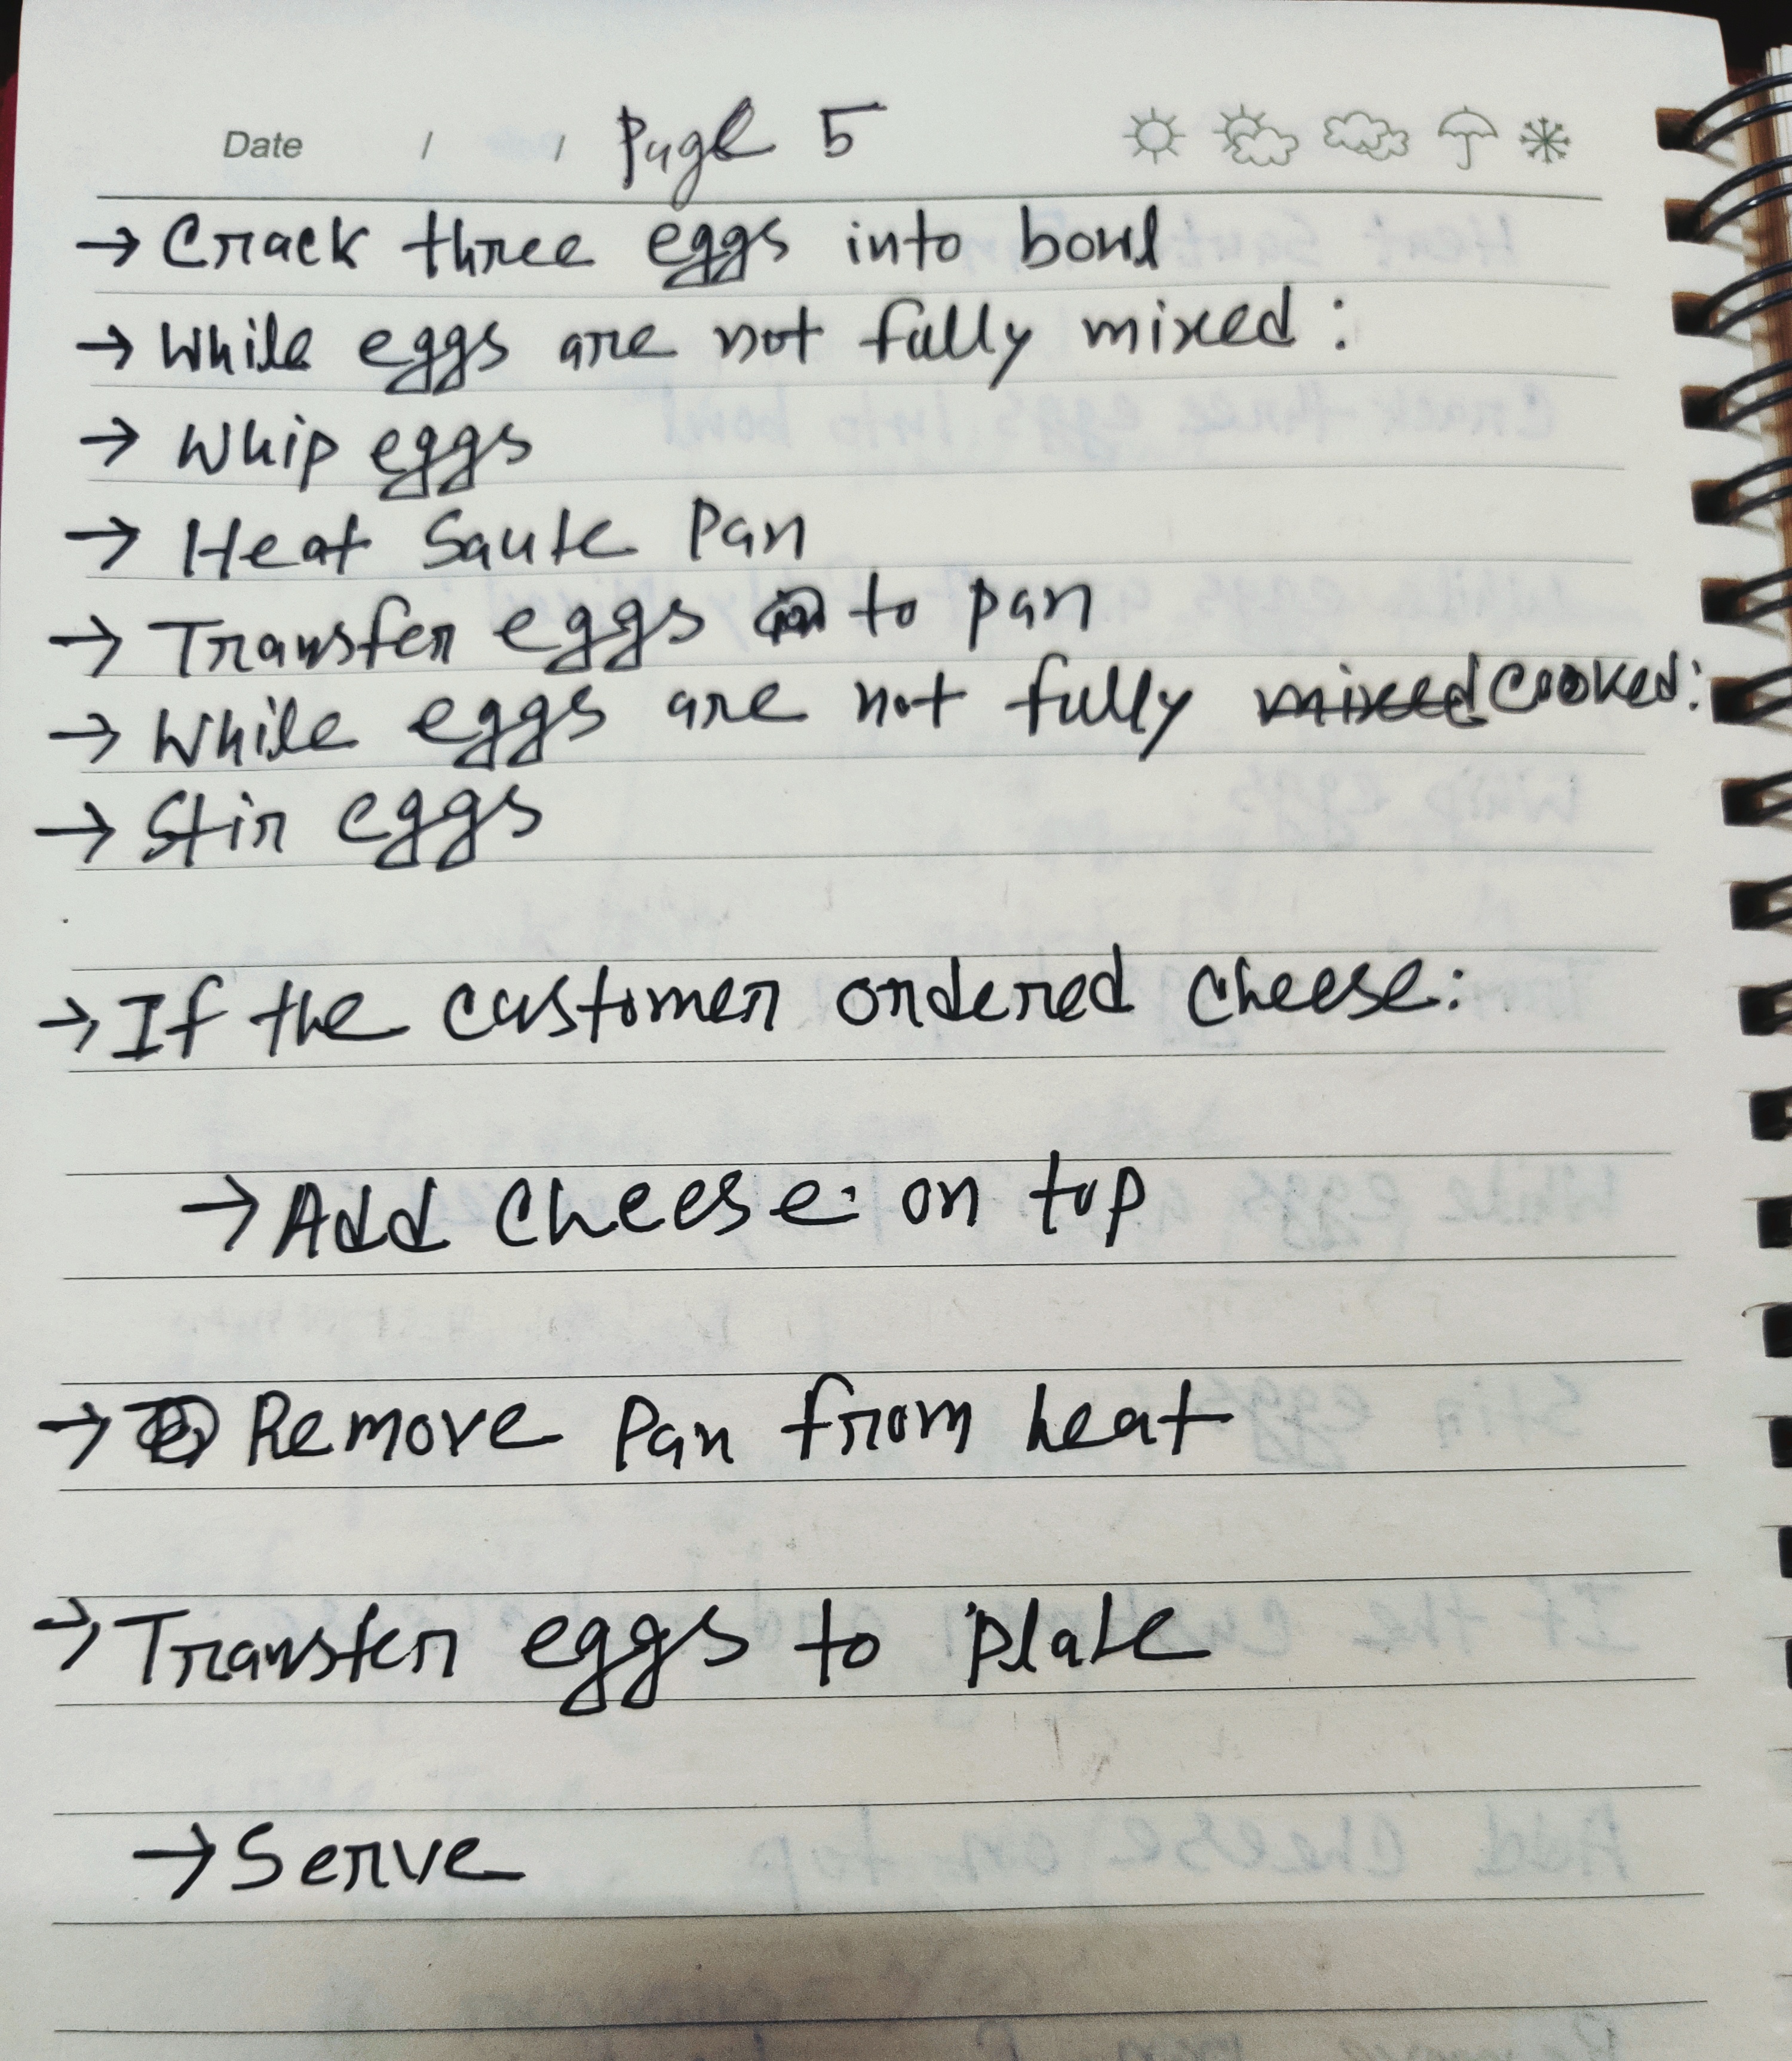 Date / / Page 5
→ Crack three eggs into bowl
→ While eggs are not fully mixed :
→ Whip eggs
→ Heat Saute Pan
→ Transfer eggs to pan
→ While eggs are not fully mixed cooked:
→ Stir eggs
→ If the customer ordered cheese:
→ Add cheese: on top
→ Remove Pan from heat
→ Transfer eggs to plate
→ Serve